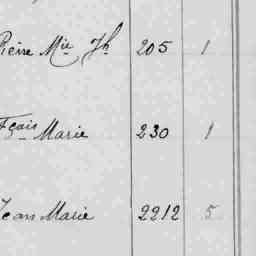 Pierre Mie Jh 205 1
Fçois Marie 230 1
Jean Marie 2212 5